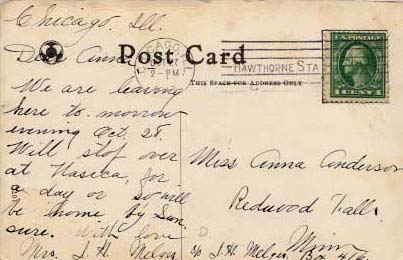 Chicago, Ill.
Dear Anna
We are leaving
here to-morrow
evening Oct 28.
Will stop over
at Waseca, for
a day or so will
be home by Sun.
sure. With love
Mrs. J. H.
Post Card
THIS SPACE FOR ADDRESS ONLY
2-PM
HAWTHORNE STA
U.S. POSTAGE
1 CENT 1
Miss Anna Anderson
Redwood Falls
Minn
c/o J. H. Box 416